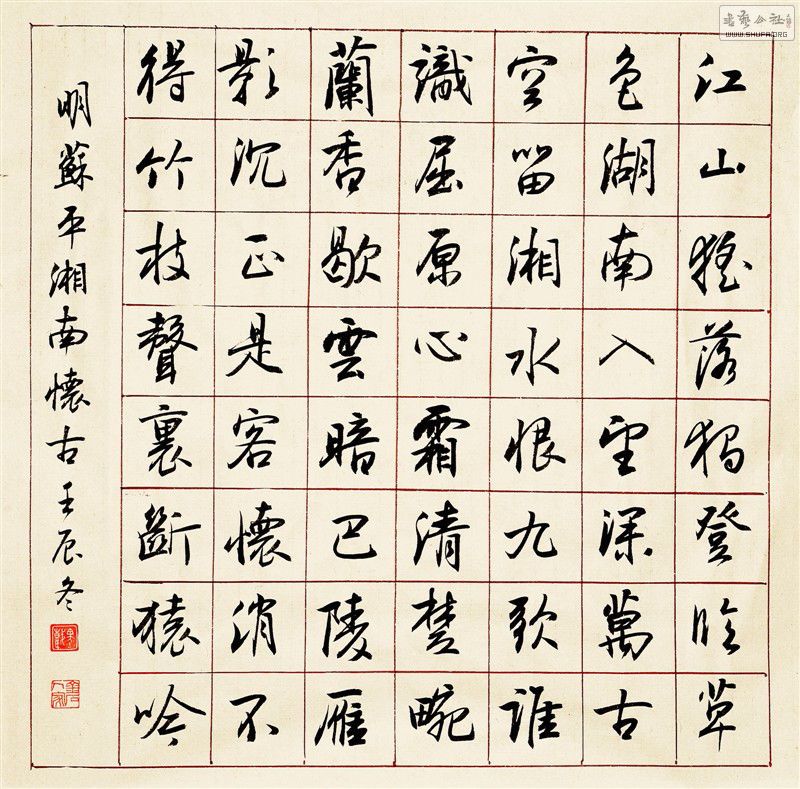 江山搖落獨登臨草
色湖南入望深萬古
空留湘水恨九歌誰
識屈原心霜清楚畹
蘭香歇雲暗巴陵雁
影沉正是客懷消不
得竹枝聲裏斷猿吟
明蘇平湘南懷古壬辰冬
書藝公社
WWW.SHUFA.ORG